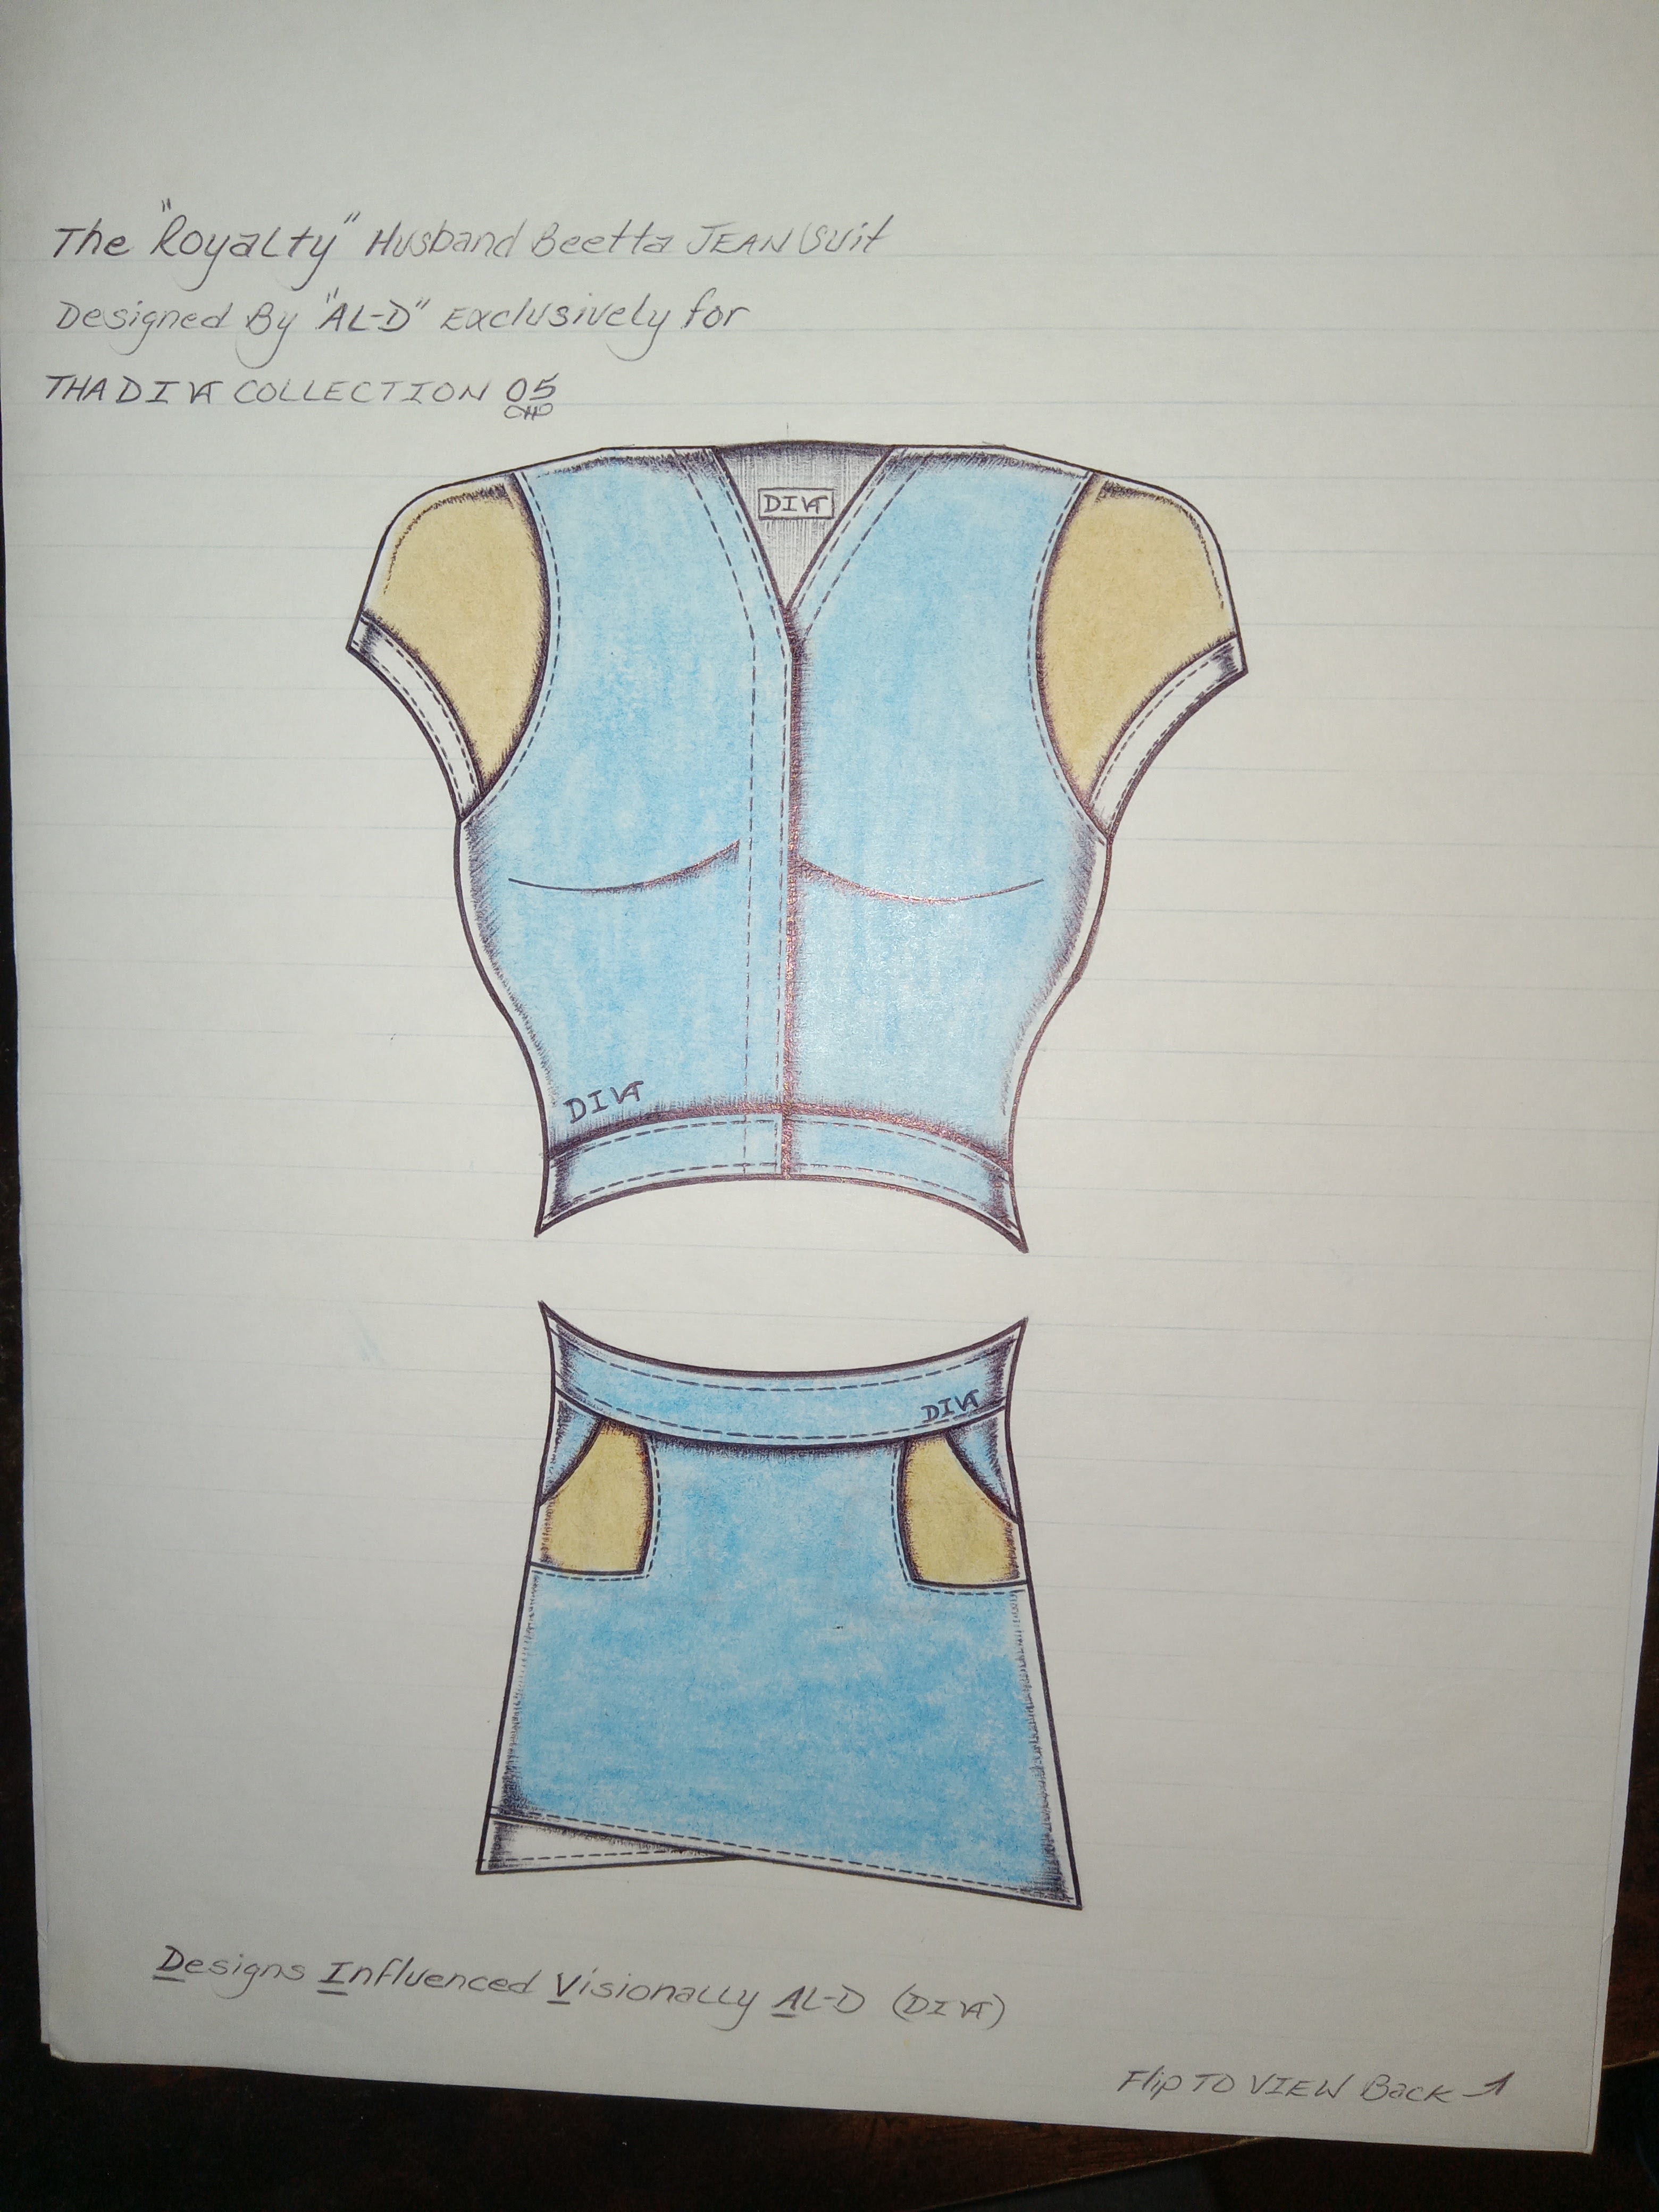 The "Royalty" Husband Beetta JEAN Suit
Designed By "AL-D" Exclusively for
THA DIVA COLLECTION 05
DIVA
DIVA
DIVA
Designs Influenced Visionally AL-D (DIVA)
Flip TO VIEW Back